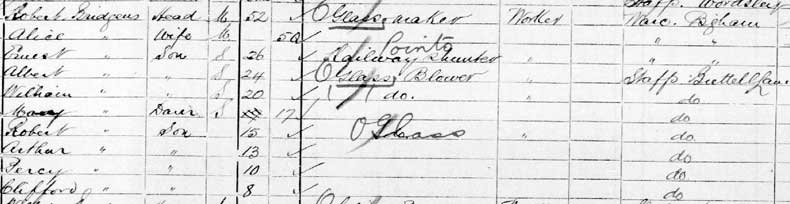 Staff. Wordsley
Robert Bridgens Head M 52 Glass maker Worker Worc.
Alice " Wife M 50 " "
Points
Ernest " Son S 26 Railway Shunter " " "
Albert " " S 24 Glass Blower " Staffs Brettell Lane
William " " S 20 do. " do
Mary " Daur S 17 do
Robert " Son 15 Glass " do
Arthur " " 13 do
Percy " " 10 do
Clifford " " 8 do